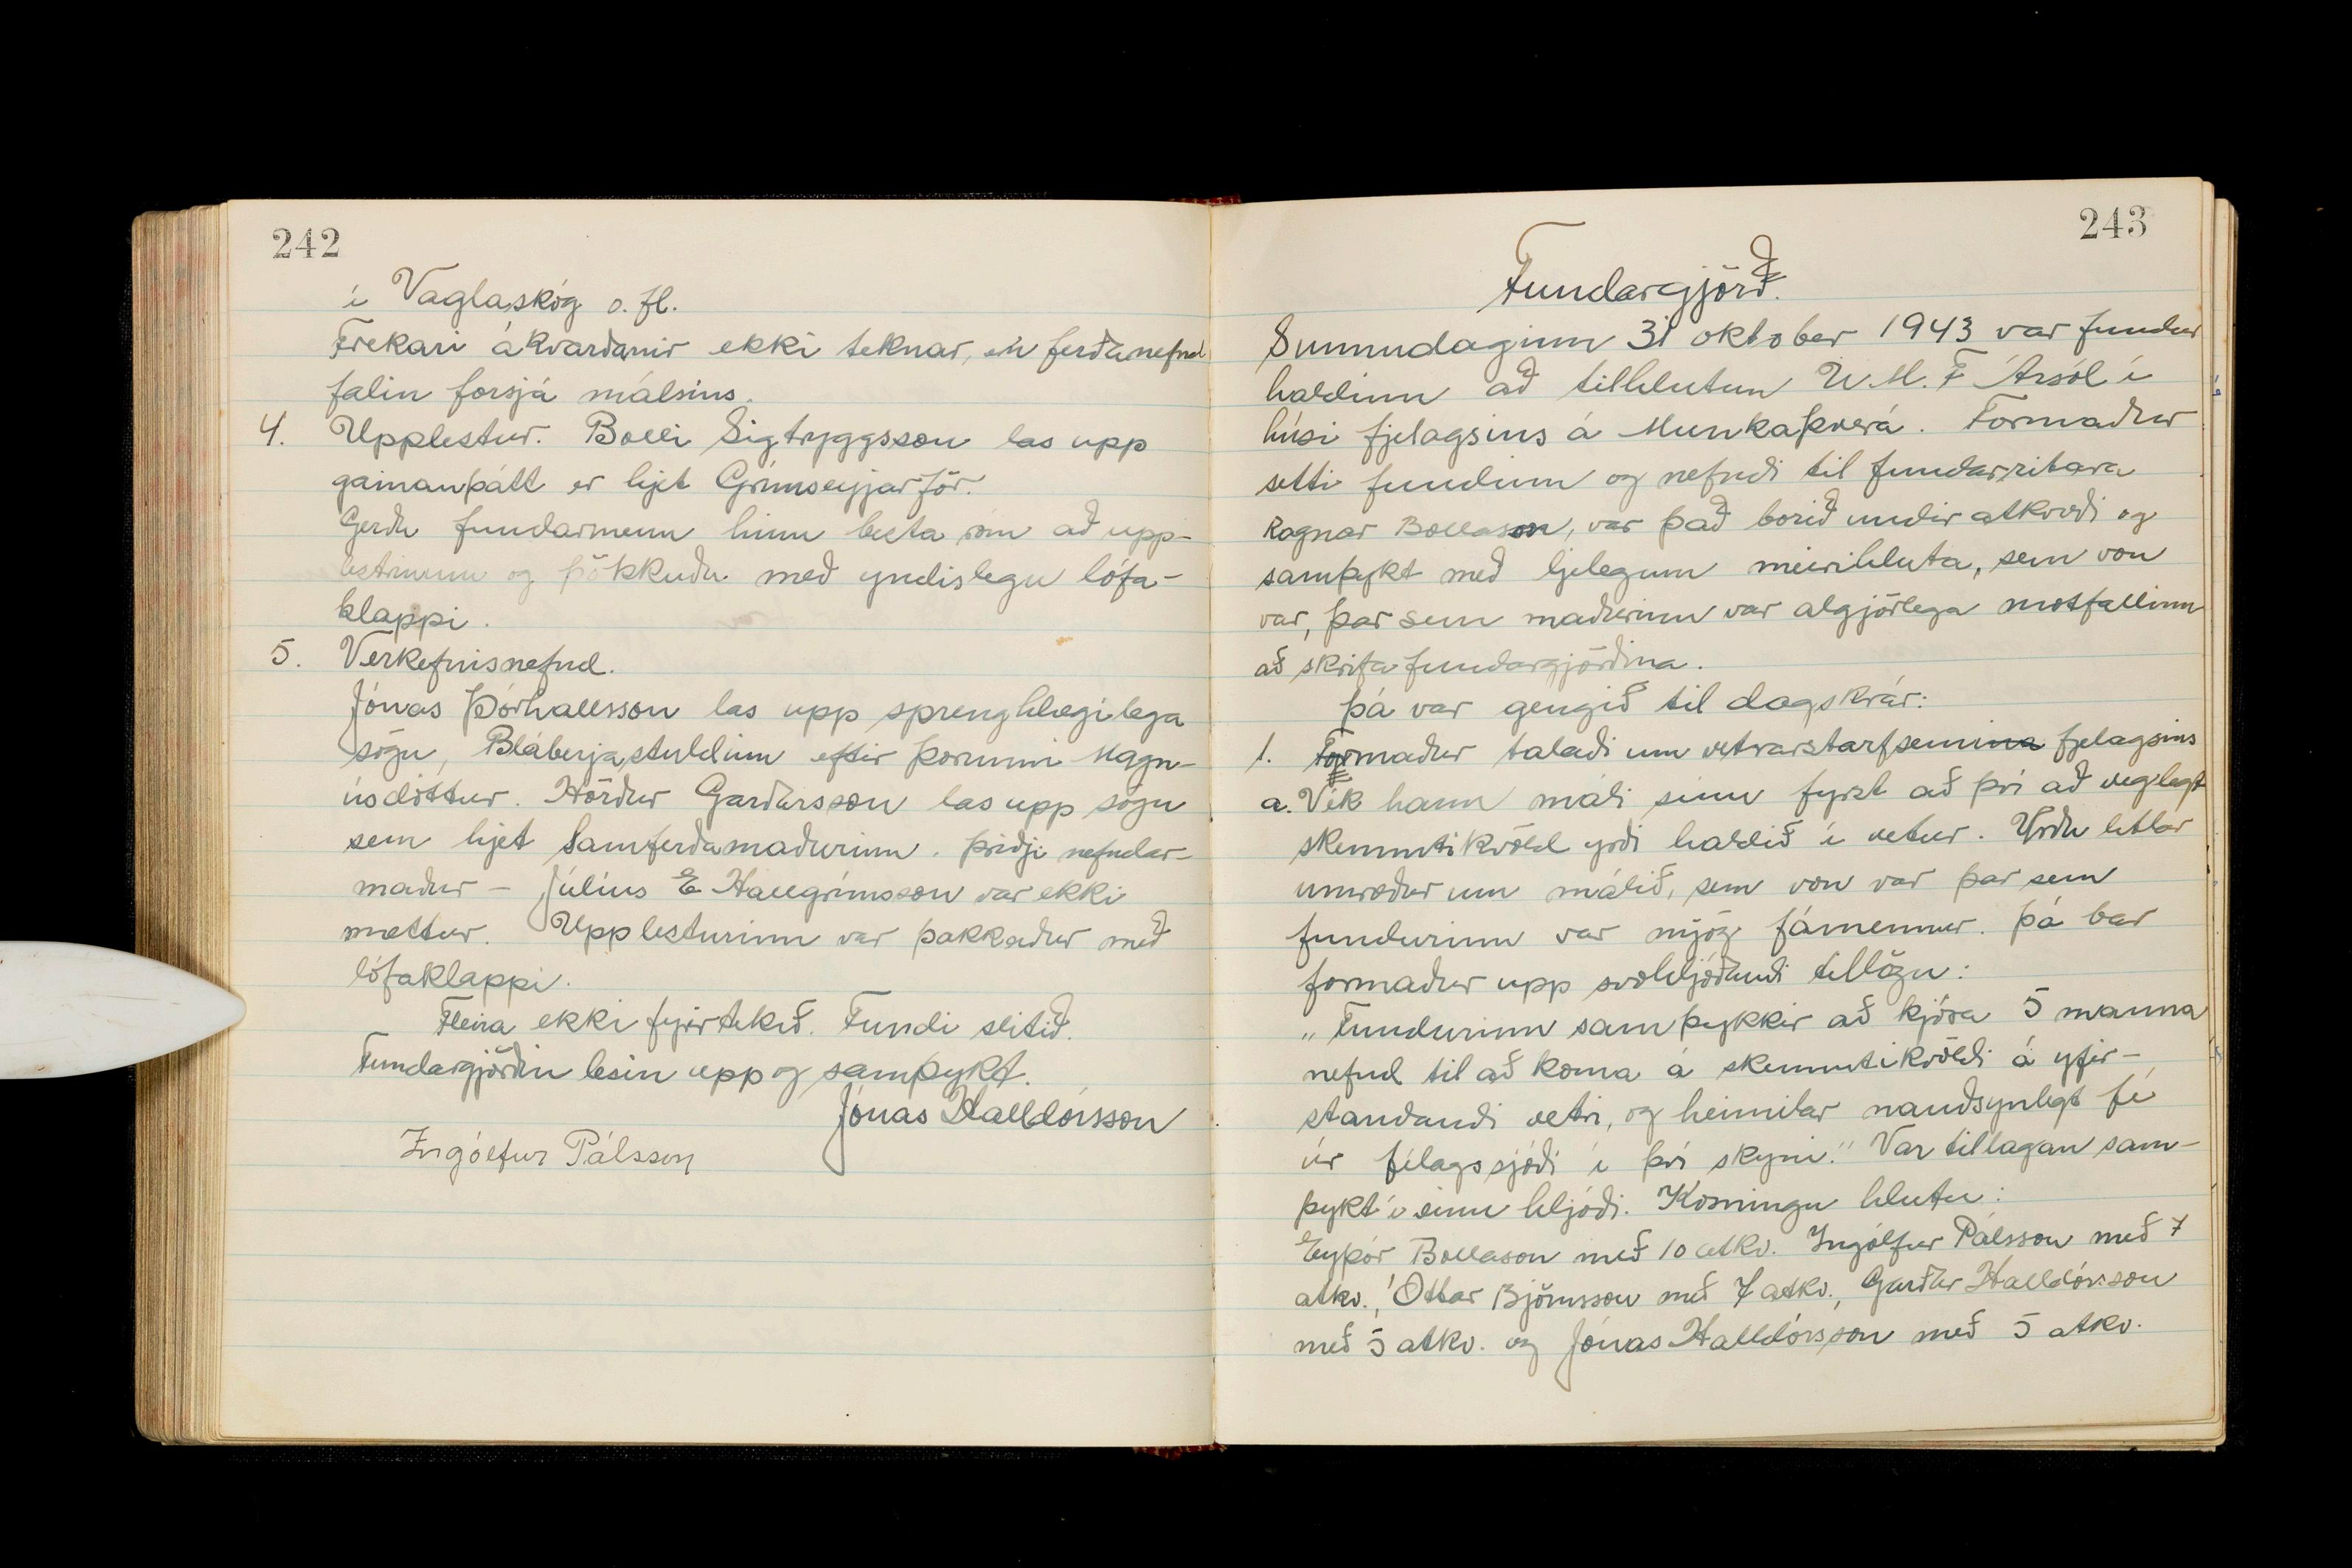 242
í Vaglaskóg o. fl.
Frekari ákvarðanir ekki teknar, en ferðanefnd
falin forsjá málsins.
4. Upplestur. Bolli Sigtryggsson las upp
gamanþátt er hjet Grímseyjarför.
Gerðu fundarmenn hinn besta róm að upp-
lestrinum og þökkuðu með yndislegu lófa-
klappi.
5. Verkefnisnefnd.
Jónas Þórhallsson las upp sprenghlægilega
sögu, Bláberjastuldinn eftir Þorunni Magn-
úsdóttur. Hörður Garðarsson las upp sögu
sem hjet Samferðamaðurinn. Þriðji nefndar-
maður - Júlíus E Hallgrímsson var ekki
mættur. Upplesturinn var þakkaður með
lófaklappi.
Fleira ekki fyrirtekið. Fundi slitið.
Fundargjörðin lesin upp og samþykt.
Jónas Halldórsson
Ingólfur Pálsson
243
Fundargjörð.
Sunnudaginn 31 oktober 1943 var fundur
haldinn að tilhlutun U.M.F Ársól í
húsi fjelagsins á Munkaþverá. Formaður
setti fundinn og nefndi til fundarritara
Ragnar Bollason, var það borið undir atkvæði og
samþykt með ljelegum meirihluta, sem von
var, þar sem maðurinn var algjörlega mótfallinn
að skrifa fundargjörðina.
Þá var gengið til dagskrár:
1. Formaður talaði um vetrarstarfsemina fjelagsins
a. Vék hann máli sínu fyrst að því að veglegt
skemmtikvöld yrði haldið í vetur. Urðu litlar
umræður um málið, sem von var þar sem
fundurinn var mjög fámennur. Þá bar
formaður upp svohljóðandi tillögu:
"Fundurinn samþykkir að kjósa 5 manna
nefnd til að koma á skemmtikvöldi á yfir-
standandi vetri, og heimilar nauðsynlegt fé
úr félagssjóði í því skyni." Var tillagan sam-
þykt í einu hljóði. Kosningu hlutu:
Eyþór Bollason með 10 atkv. Ingólfur Pálsson með 7
atkv., Óttar Björnsson með 7 atkv., Garðar Halldórsson
með 5 atkv. og Jónas Halldórsson með 5 atkv.